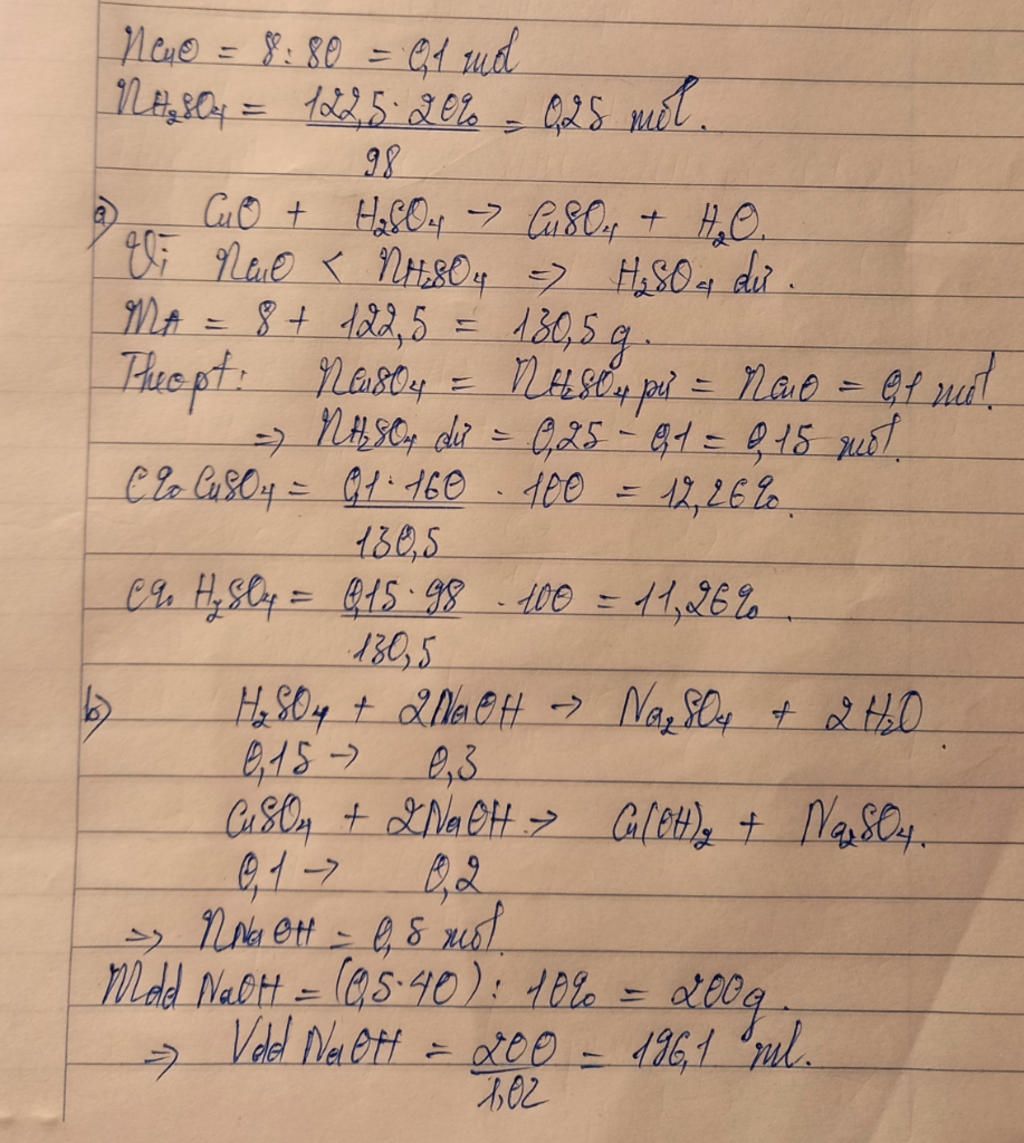 nCuO = 8 : 80 = 0,1 mol
nH₂SO₄ = 122,5 · 20% / 98 = 0,25 mol.
a) CuO + H₂SO₄ → CuSO₄ + H₂O.
Vì nCuO < nH₂SO₄ => H₂SO₄ dư.
mA = 8 + 122,5 = 130,5 g.
Theo pt: nCuSO₄ = nH₂SO₄ pư = nCuO = 0,1 mol.
=> nH₂SO₄ dư = 0,25 - 0,1 = 0,15 mol.
C% CuSO₄ = 0,1 · 160 / 130,5 · 100 = 12,26%.
C% H₂SO₄ = 0,15 · 98 / 130,5 · 100 = 11,26%.
b) H₂SO₄ + 2NaOH → Na₂SO₄ + 2H₂O.
0,15 → 0,3
CuSO₄ + 2NaOH → Cu(OH)₂ + Na₂SO₄.
0,1 → 0,2
=> nNaOH = 0,5 mol
mdd NaOH = (0,5·40) : 10% = 200g.
=> Vdd NaOH = 200 / 1,02 = 196,1 ml.